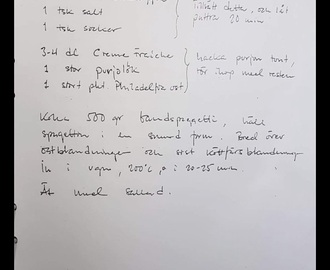 1 tsk salt
1 tsk socker
Tillsätt detta, och låt
puttra 20 min
3-4 dl Creme Fraiche
1 stor purjolök
1 stort pkt. Philadelfia ost
hacka purjon tunt,
rör ihop med resten
Koka 500 gr bandspagetti, häll
spagettin i en smord form. Bred över
ostblandningen och sist köttfärsblandning
in i ugn, 200°C, i 20-25 min
Ät med sallad.